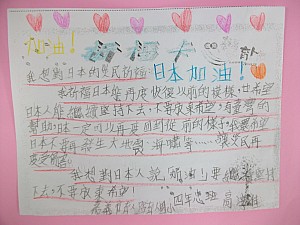 加油! 祈福卡
我想對日本的災民祈福:日本加油!
我祈福日本能再度恢復以前的模樣,也希望
日本人能繼續堅持下去,不要放棄希望,有愛的
幫助,日本一定可以再要回到從前的樣子,我希望
日本不要再發生大地震、海嘯等……讓災民再
受
我想對日本人說「加油」!要繼續堅持
下去,不要放棄希望!
四年忠班